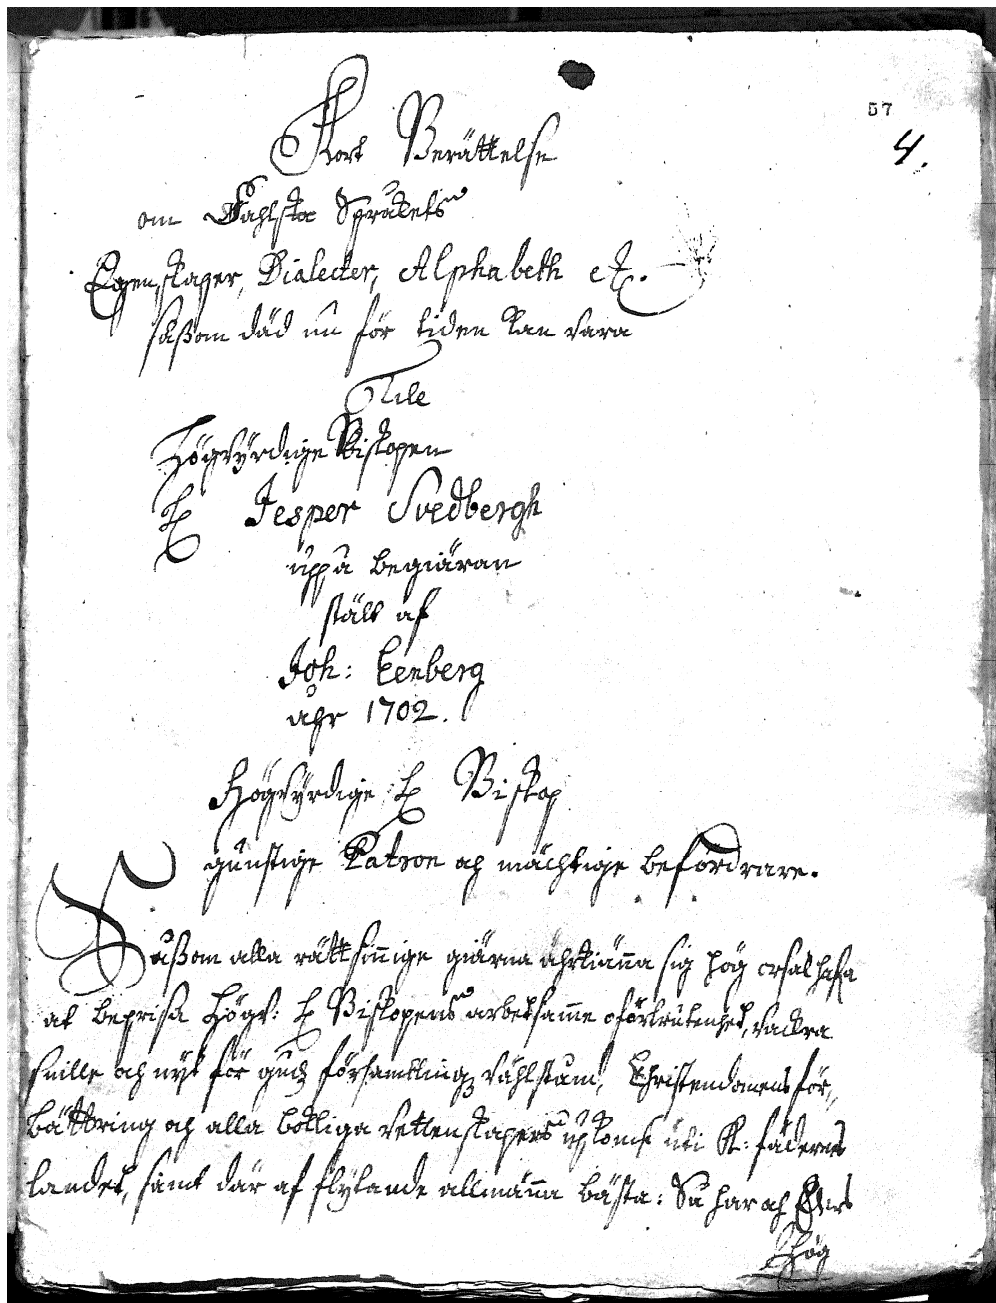 57
4.
Kort Berättelse
om Dahlska Språketz
Egenskaper, Dialecter, Alphabeth etc.
såßom däd nu för tiden kan vara
Till
Högvyrdige Biskopen
H Jesper Svedbergh
uppå begiäran
stält af
Joh: Eenberg
åhr 1702.
Högvyrdige H Biskop
gunstige Patron och mächtige befordrare.
Såßom alla rättsinnige giärna ährkiänna sig hög orsak hafa
at beprisa Högv: H Biskopens arbetsamme oförtrutenhet, vackra
snille och nyt för gudz församblingz välstånd, Christendomens för„
bättring och alla boklliga vettenskapers upkomst uti K: fädernes
landet, samt där af flytande allmänna bästa: Så har och Eders
Hög